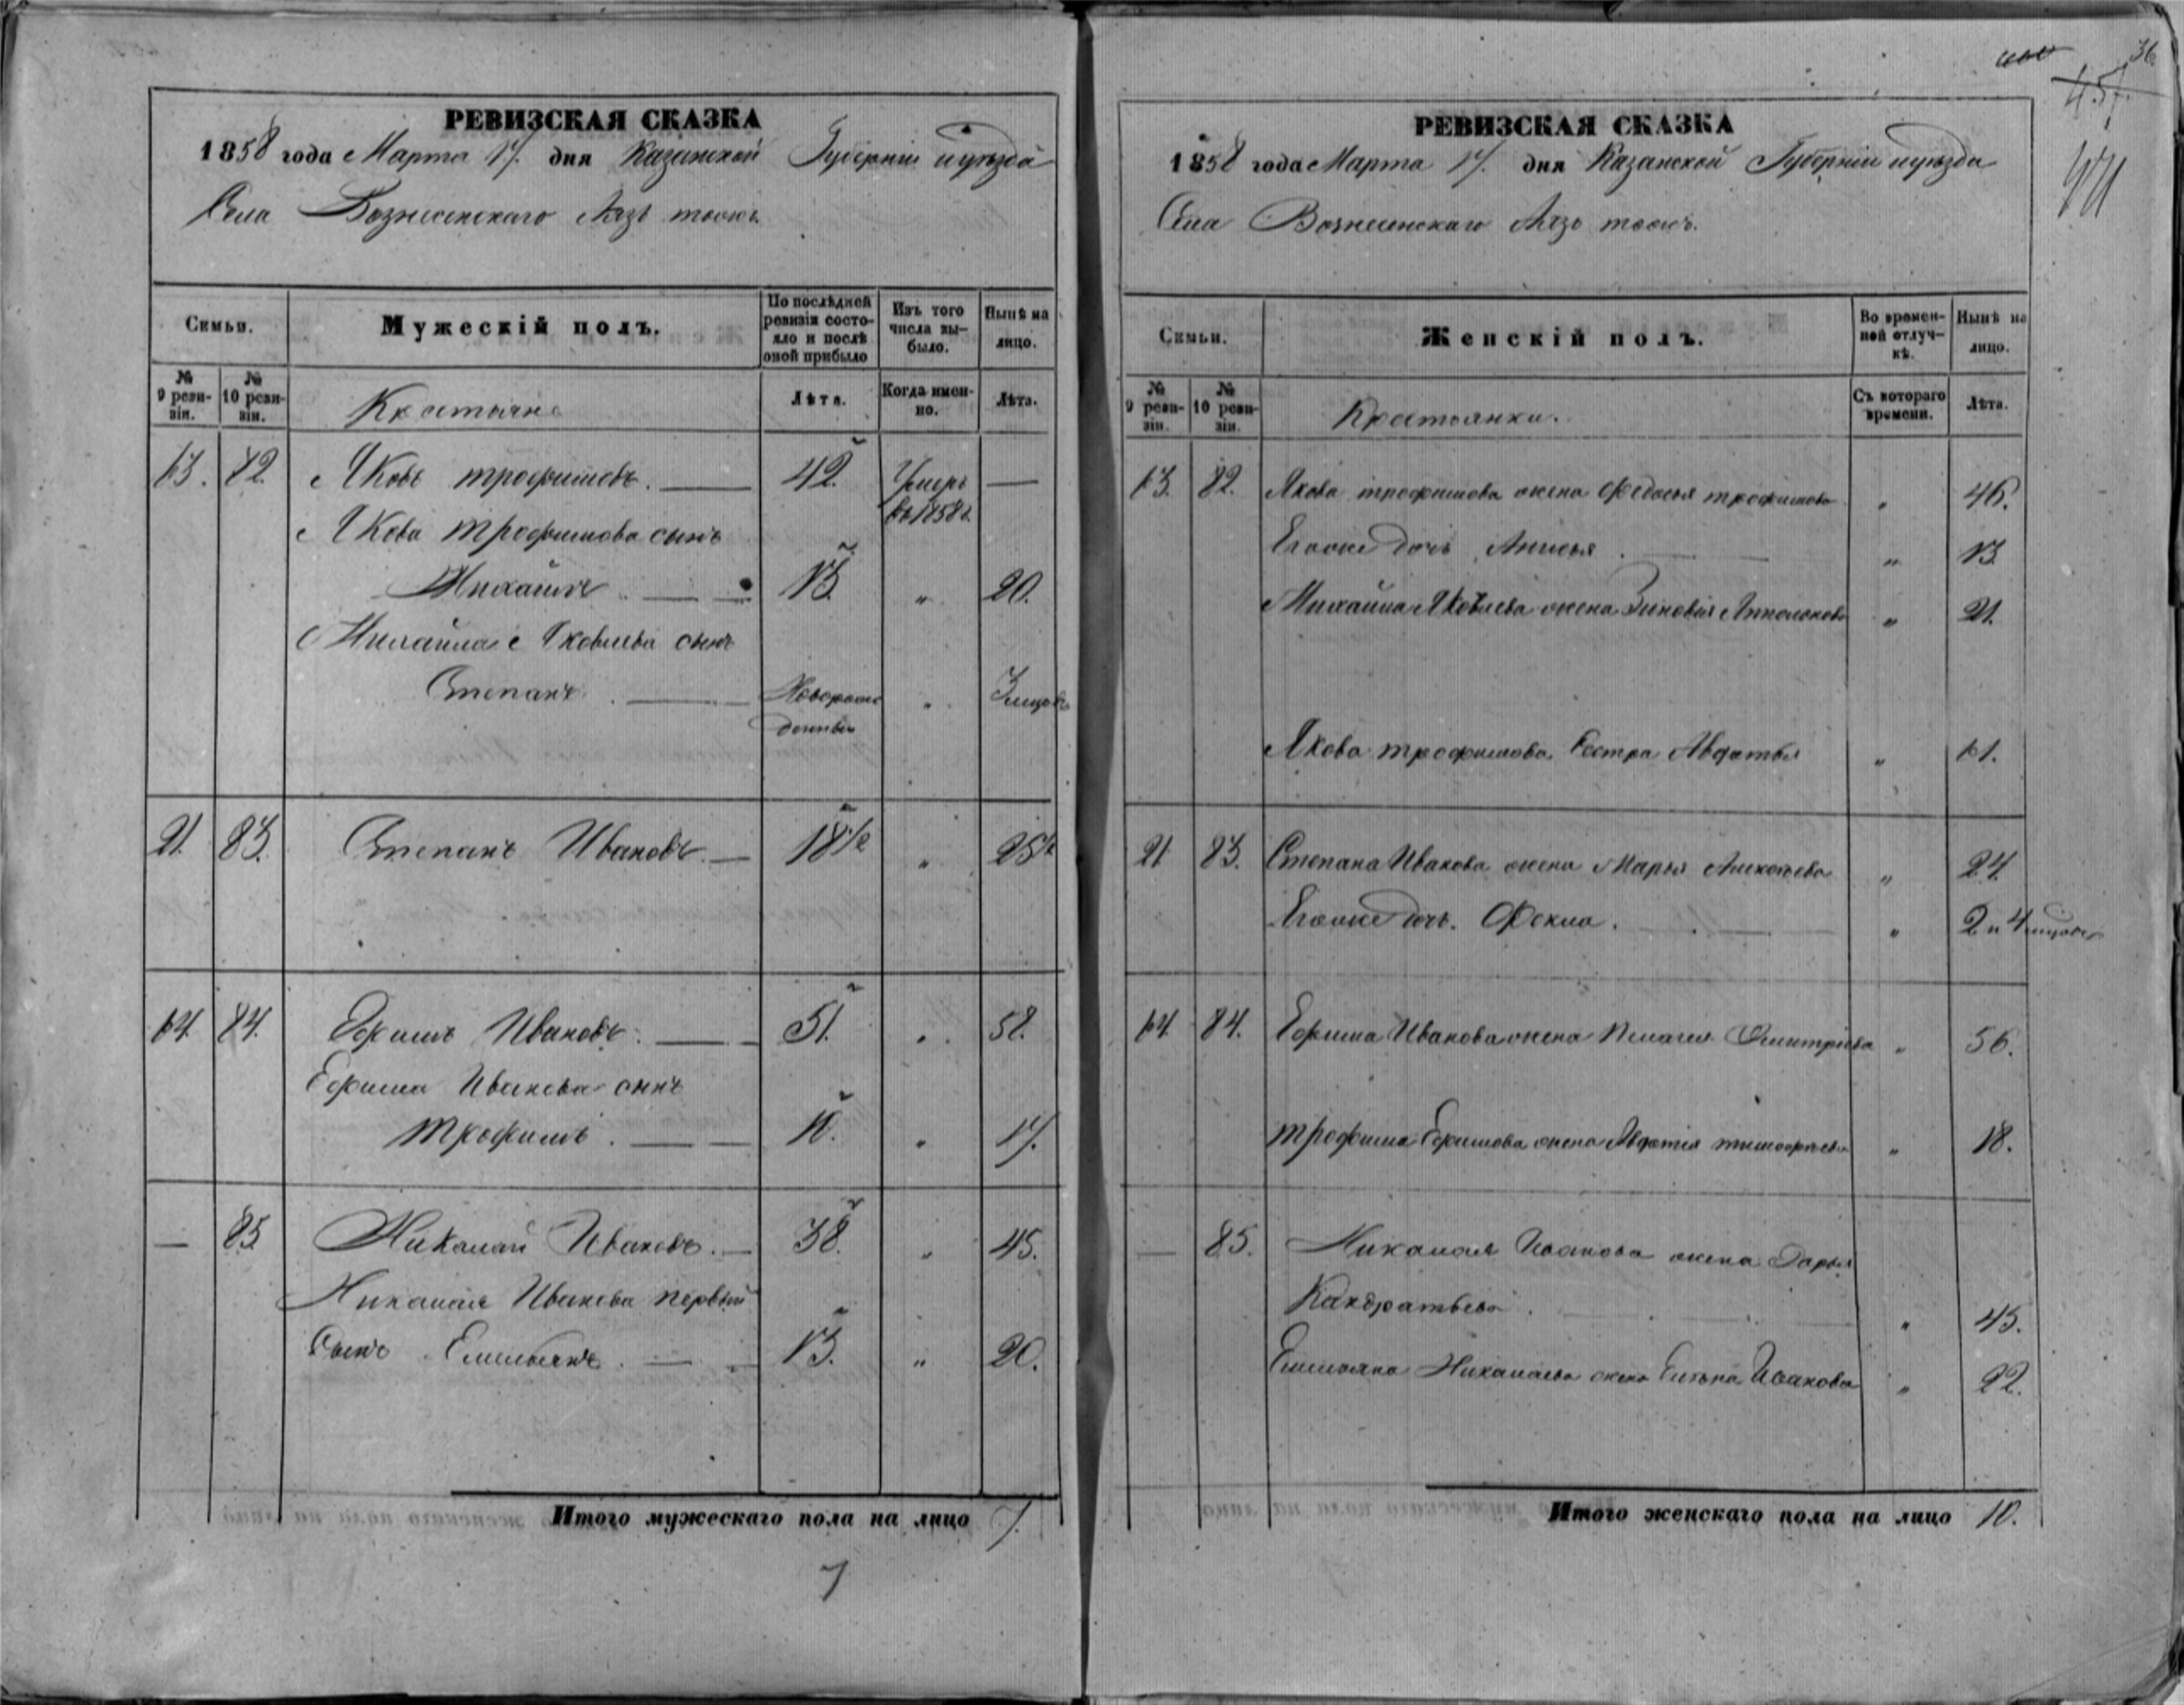 РЕВИЗСКАЯ СКАЗКА
1858 года Марта 17. дня Казанской Губерніи и уѣзда
Села Вознесенскаго
Семьи.
Мужескій полъ.
По послѣдней ревизіи состояло и послѣ оной прибыло
Изъ того числа выбыло.
Нынѣ на лицо.
№ 9 ревизіи.
№ 10 ревизіи.
Крестьяне
Лѣта.
Когда именно.
Лѣта.
13. 82. Яковъ трофимовъ. — 42. Умеръ въ 1858 г. —
Якова трофимова сынъ
Михайло. — 13. „ 20.
Михайла Яковлева сынъ
Степанъ. — Новорожденный „ 3 мѣсяцов
21. 83. Степанъ Ивановъ. — 18 1/2 „ 25 1/2
14. 84. Ефимъ Ивановъ. — 51. „ 58.
Ефима Иванова сынъ
трофимъ. — 10. „ 17.
— 85. Николай Ивановъ. — 38. „ 45.
Николая Иванова первый
Сынъ Емельянъ. — 13. „ 20.
Итого мужескаго пола на лицо 7.
7
36.
457.
РЕВИЗСКАЯ СКАЗКА
1858 года Марта 17. дня Казанской Губерніи и уѣзда
Села Вознесенскаго
Семьи.
Женскій полъ.
Во временной отлучкѣ.
Нынѣ на лицо.
№ 9 ревизіи.
№ 10 ревизіи.
Крестьянки.
Съ котораго времени.
Лѣта.
13. 82. Якова трофимова жена Федосья трофимова „ 46.
Его же дочь Анисья. — „ 13.
Михайла Яковлева жена Зиновія „ 21.
Якова трофимова Сестра Авдотья „
21 83. Степана Иванова жена Марья Алексѣева „ 24.
Его же дочь. Фекла. — „ 2 и 4 мѣсяцов
14. 84. Ефима Иванова жена Пелагея Дмитріева „ 56.
трофима Ефимова жена Авдотія тимофѣева „ 18.
— 85. Николая Иванова жена Дарья
Кандратьева. „ 45.
Емельяна Николаева жена Елена Иванова „ 22.
Итого женскаго пола на лицо 10.